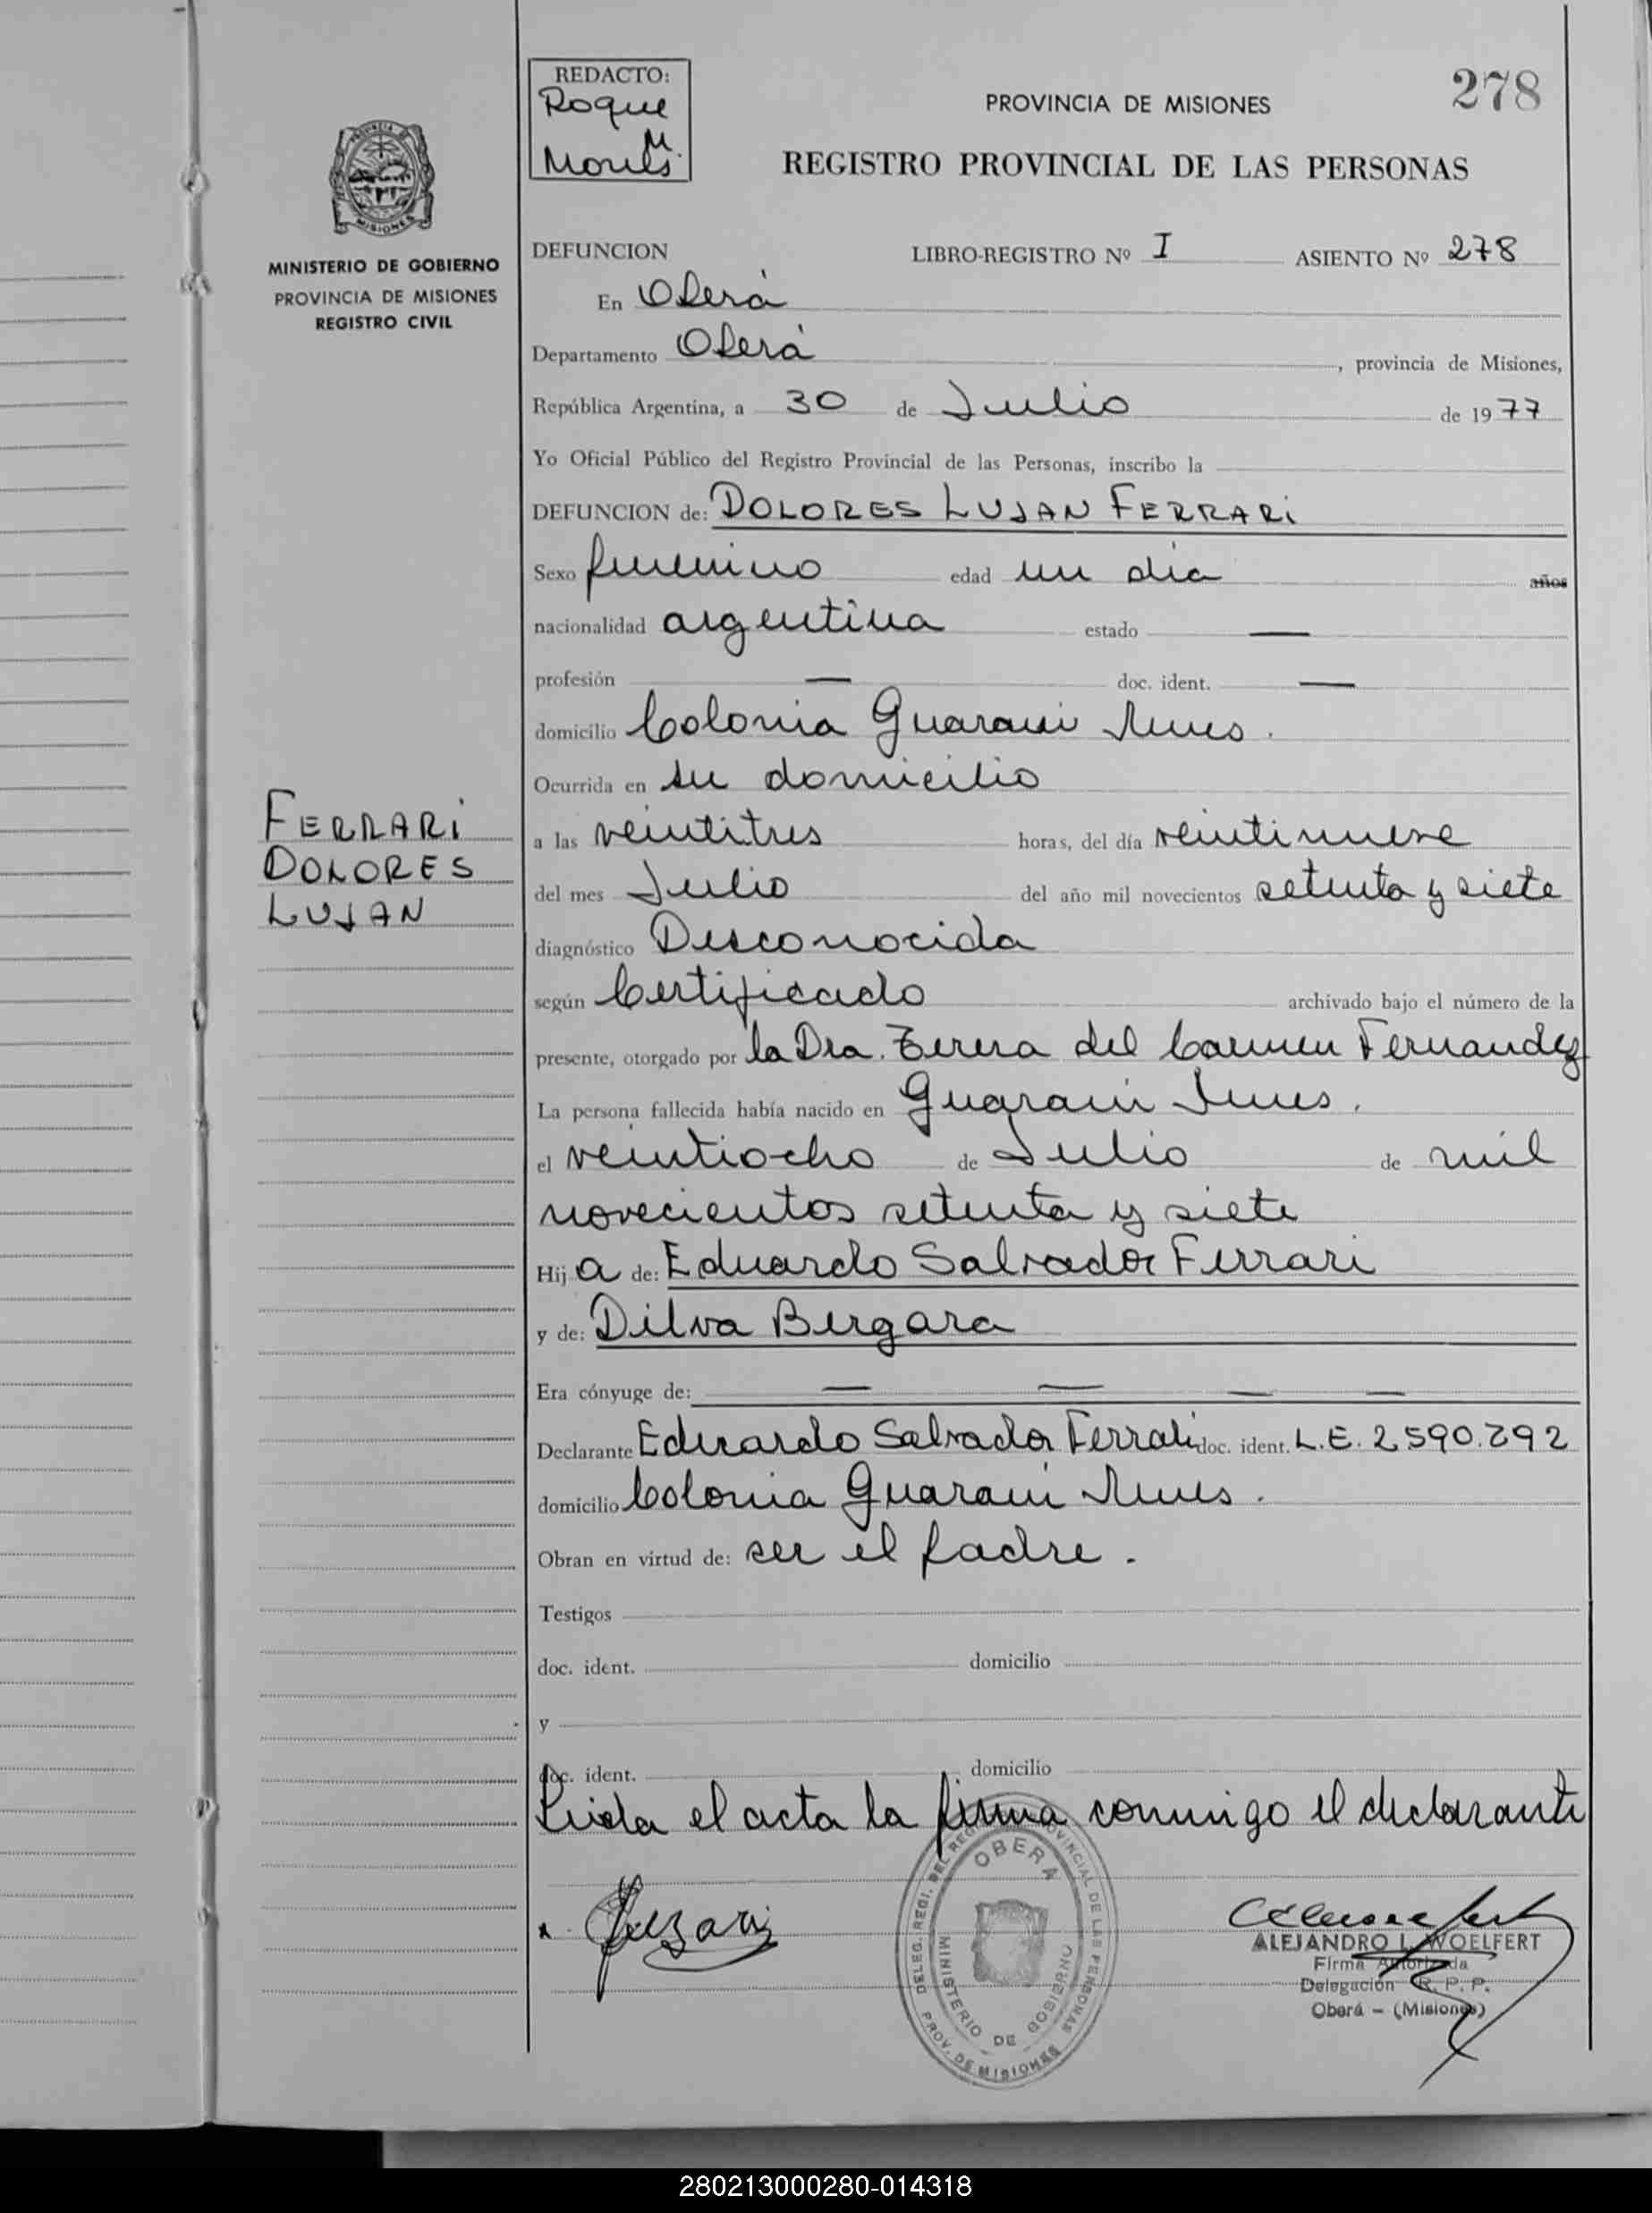 REDACTO:
Roque
M.
278
PROVINCIA DE MISIONES
REGISTRO PROVINCIAL DE LAS PERSONAS
MINISTERIO DE GOBIERNO
PROVINCIA DE MISIONES
REGISTRO CIVIL
DEFUNCION LIBRO-REGISTRO Nº I ASIENTO Nº 278
En Oberá
Departamento Oberá, provincia de Misiones,
República Argentina, a 30 de Julio de 1977
Yo Oficial Público del Registro Provincial de las Personas, inscribo la
DEFUNCION de: DOLORES LUJAN FERRARI
Sexo femenino edad un día años
nacionalidad argentina estado —
profesión — doc. ident. —
domicilio Colonia Guarani Mnes.
Ocurrida en su domicilio
FERRARI
DOLORES
LUJAN
a las veintitres horas, del día veintinueve
del mes Julio del año mil novecientos setenta y siete
diagnóstico Desconocida
según Certificado archivado bajo el número de la
presente, otorgado por la Dra. Teresa del Carmen Fernandez
La persona fallecida había nacido en Guarani Mnes.
el veintiocho de Julio de mil
novecientos setenta y siete
Hija de: Eduardo Salvador Ferrari
y de: Dilva Bergara
Era cónyuge de: — — — —
Declarante Eduardo Salvador Ferrari doc. ident. L.E. 2590.292
domicilio Colonia Guarani Mnes.
Obran en virtud de: ser el padre.
Testigos
doc. ident. domicilio
y
doc. ident. domicilio
Leida el acta la firma conmigo el declarante
DELEG. REGI. DEL REGISTRO PROVINCIAL DE LAS PERSONAS
OBERA
MINISTERIO DE GOBIERNO
PROV. DE MISIONES
ALEJANDRO L. WOELFERT
Firma Autorizada
Delegación R. P. P.
Oberá - (Misiones)
280213000280-014318